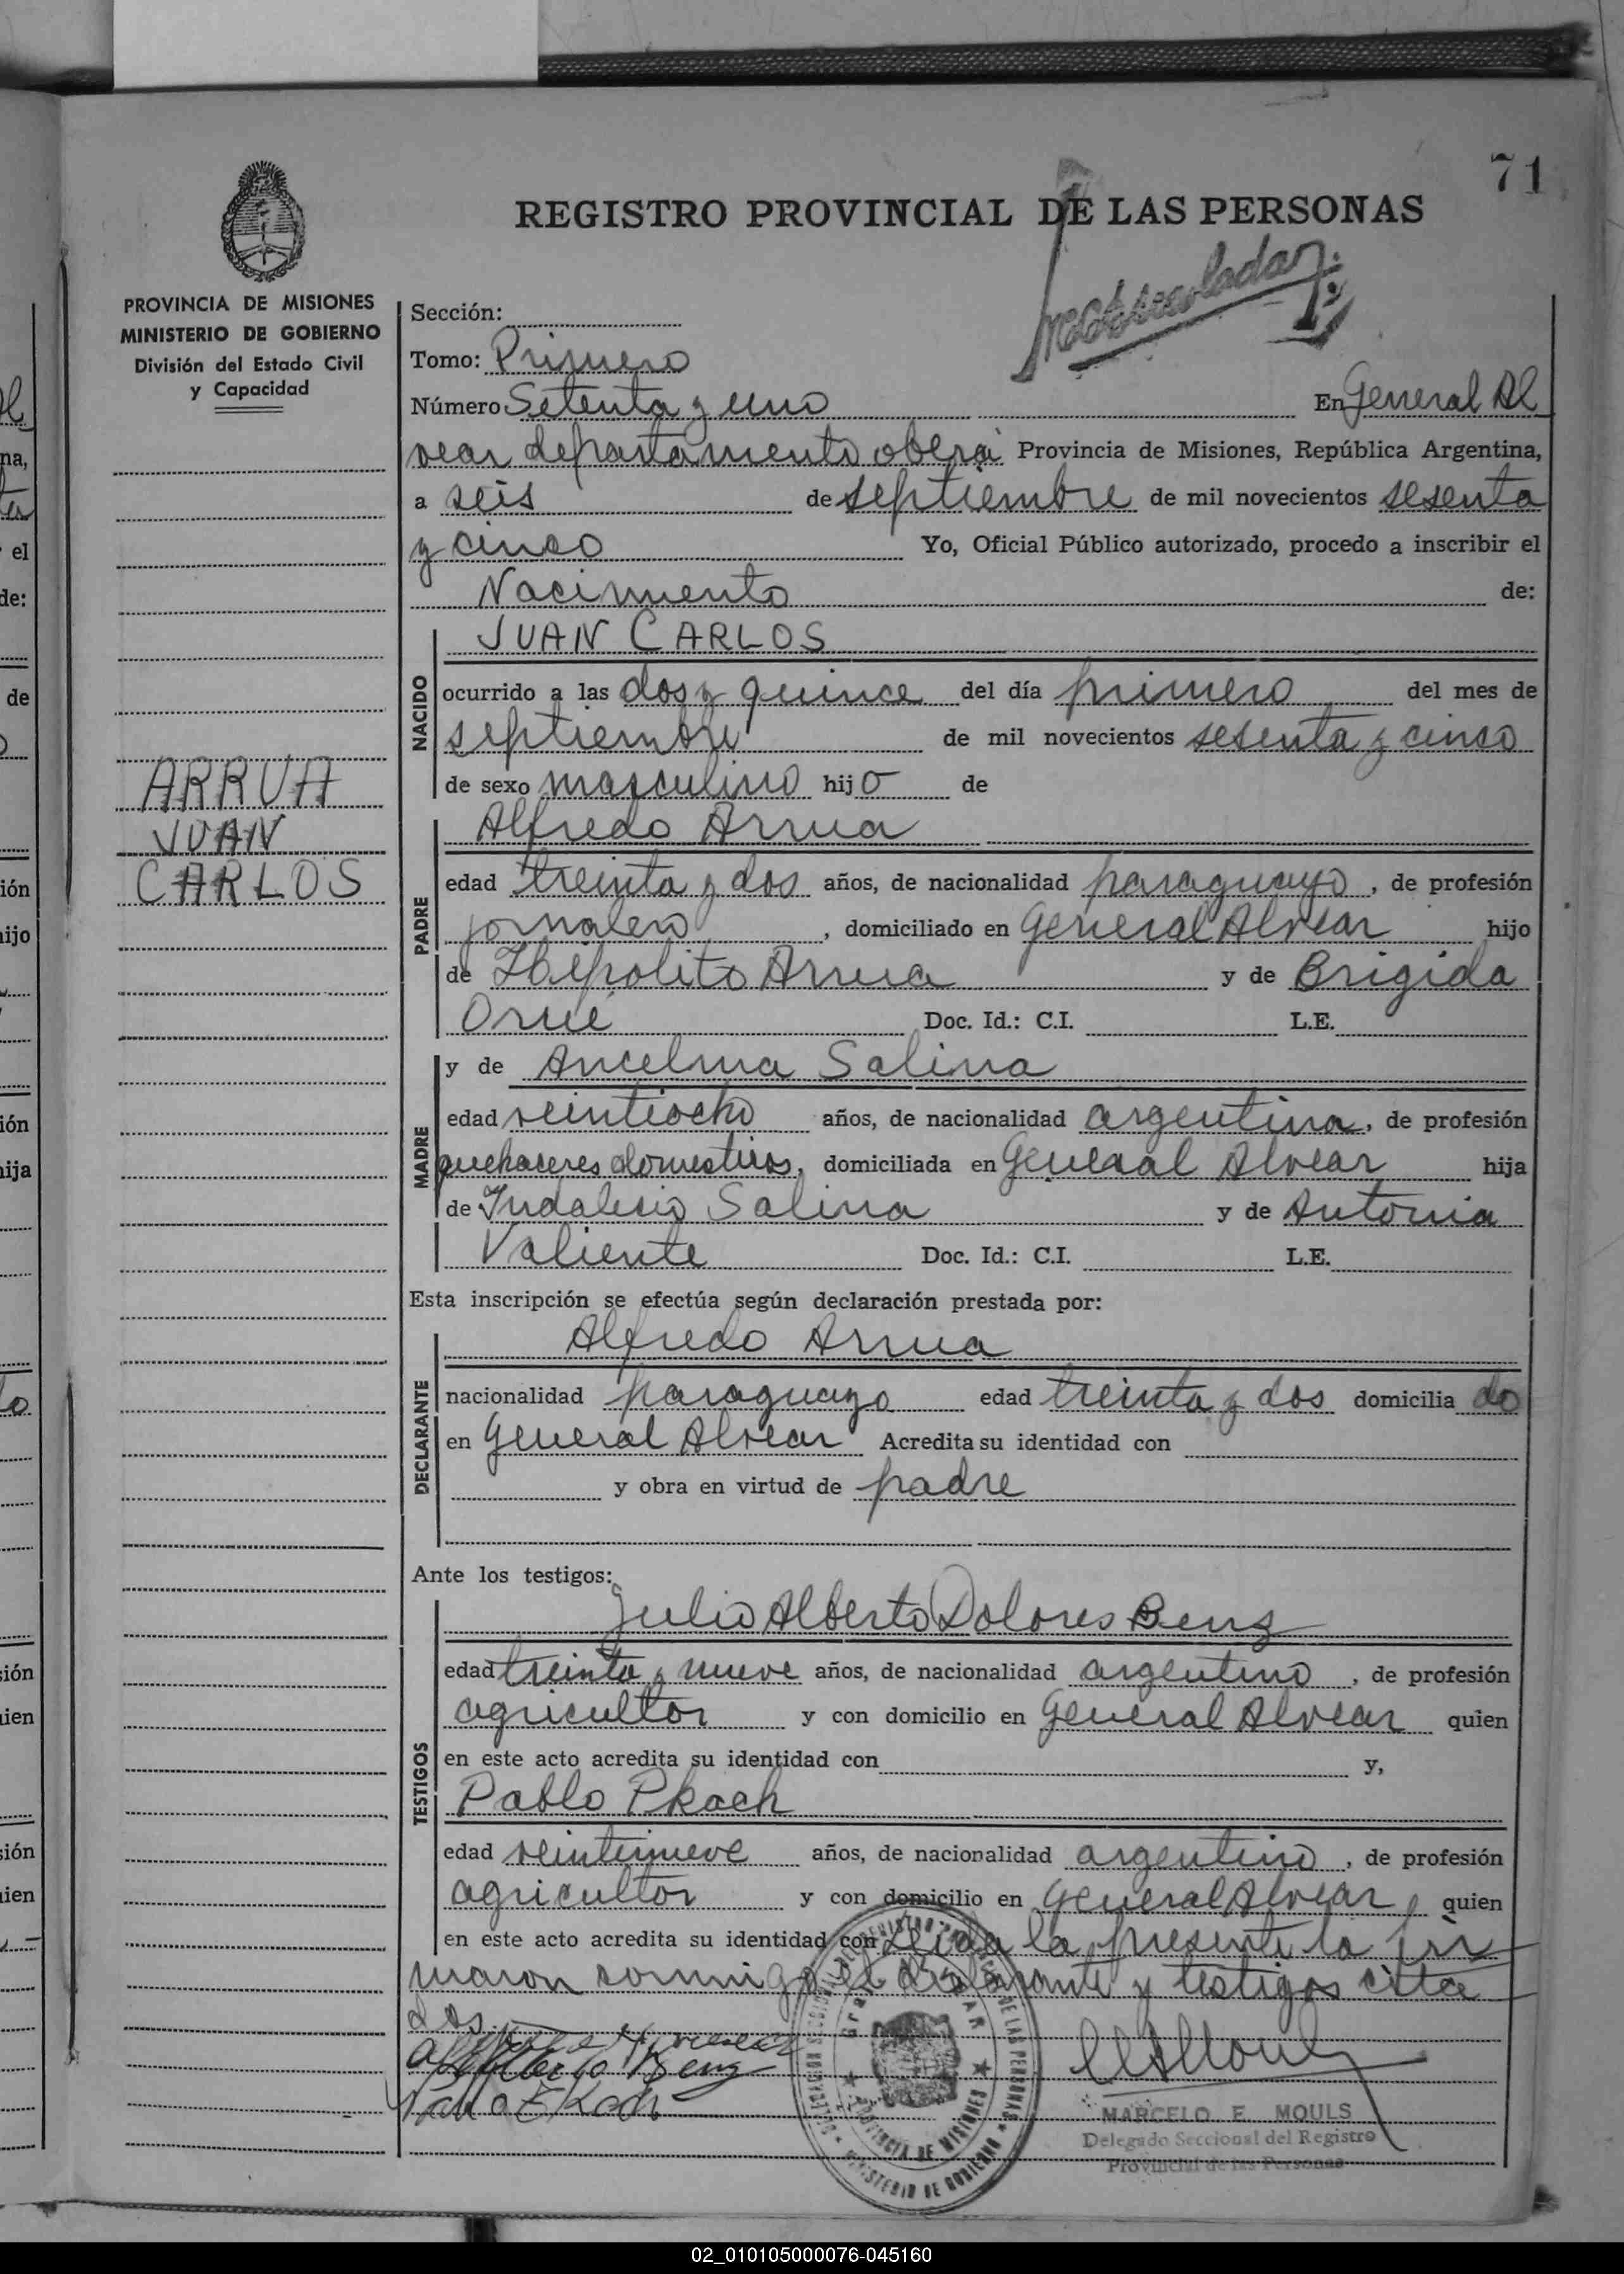 71
REGISTRO PROVINCIAL DE LAS PERSONAS
PROVINCIA DE MISIONES
MINISTERIO DE GOBIERNO
División del Estado Civil
y Capacidad
ARRUA
JUAN
CARLOS
Sección:
Tomo: Primero
Número Setenta y uno En General Al
vear departamento oberá Provincia de Misiones, República Argentina,
a seis de septiembre de mil novecientos sesenta
y cinco Yo, Oficial Público autorizado, procedo a inscribir el
Nacimiento de:
NACIDO
JUAN CARLOS
ocurrido a las dos y quince del día primero del mes de
septiembre de mil novecientos sesenta y cinco
de sexo masculino hijo de
PADRE
Alfredo Arrua
edad treinta y dos años, de nacionalidad paraguayo, de profesión
jornalero, domiciliado en General Alvear hijo
de Hipolito Arrua y de Brigida
Orué Doc. Id.: C.I. L.E.
MADRE
y de Ancelma Salina
edad veintiocho años, de nacionalidad argentina, de profesión
quehaceres domesticos, domiciliada en General Alvear hija
de Indalesio Salina y de Antonia
Valiente Doc. Id.: C.I. L.E.
Esta inscripción se efectúa según declaración prestada por:
DECLARANTE
Alfredo Arrua
nacionalidad paraguayo edad treinta y dos domicilia do
en General Alvear Acredita su identidad con
y obra en virtud de padre
Ante los testigos:
TESTIGOS
Julio Alberto Dolores Benz
edad treinta y nueve años, de nacionalidad argentino, de profesión
agricultor y con domicilio en General Alvear quien
en este acto acredita su identidad con y,
Pablo Pkach
edad veintinueve años, de nacionalidad argentino, de profesión
agricultor y con domicilio en General Alvear, quien
en este acto acredita su identidad con Leida la presente la fir
maron conmigo el declarante y testigos cita
dos.
MARCELO E. MOULS
Delegado Seccional del Registro
Provincial de las Personas
PROVINCIA DE MISIONES
MINISTERIO DE GOBIERNO
02_010105000076-045160